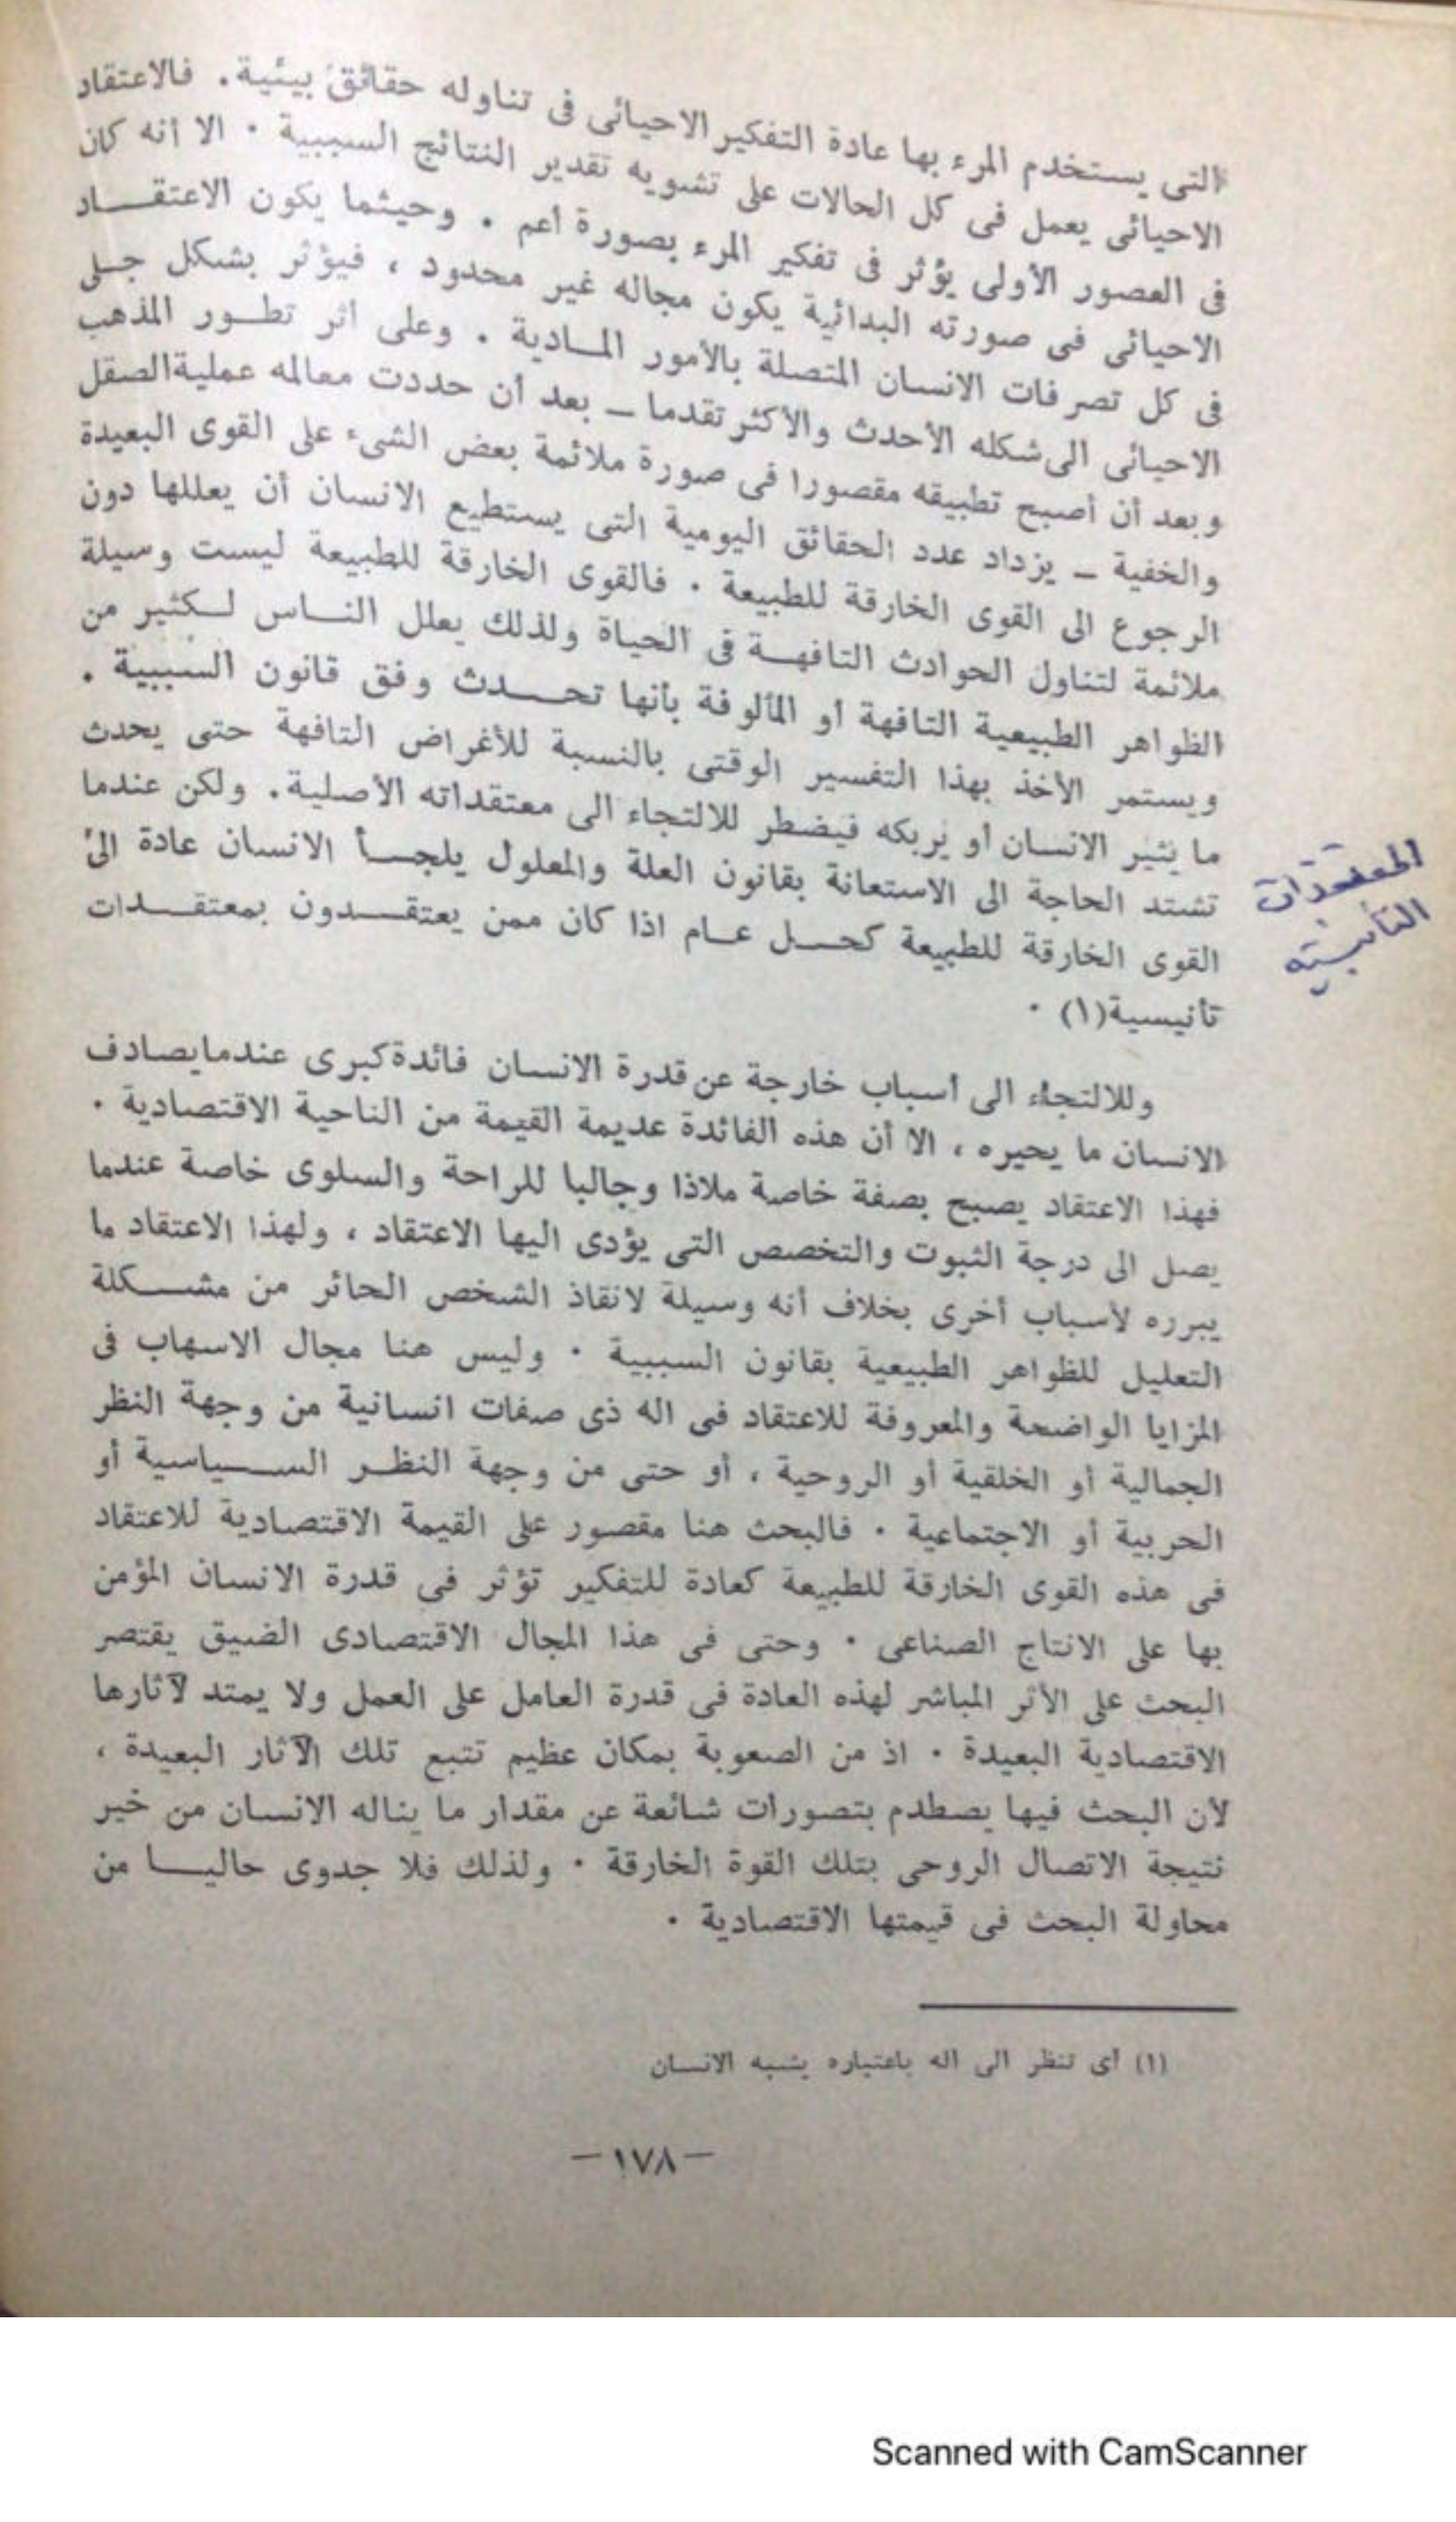 التى يستخدم المرء بها عادة التفكير الاحيائى فى تناوله حقائق بيئية . فالاعتقاد
الاحيائى يعمل فى كل الحالات على تشويه تقدير النتائج السببية ٠ الا أنه كان
فى العصور الأولى يؤثر فى تفكير المرء بصورة أعم . وحيثما يكون الاعتقـــاد
الاحيائى فى صورته البدائية يكون مجاله غير محدود ، فيؤثر بشكل جـلى
فى كل تصرفات الانسان المتصلة بالأمور المــادية . وعلى أثر تطــور المذهب
الاحيائى الى شكله الأحدث والأكثر تقدما ــ بعد أن حددت معالمه عملية الصقل
وبعد أن أصبح تطبيقه مقصورا فى صورة ملائمة بعض الشىء على القوى البعيدة
والخفية ــ يزداد عدد الحقائق اليومية التى يستطيع الانسان أن يعللها دون
الرجوع الى القوى الخارقة للطبيعة ٠ فالقوى الخارقة للطبيعة ليست وسيلة
ملائمة لتناول الحوادث التافهــة فى الحياة ولذلك يعلل النــاس لــكثير من
الظواهر الطبيعية التافهة أو المألوفة بأنها تحــــدث وفق قانون السببية .
ويستمر الأخذ بهذا التفسير الوقتى بالنسبة للأغراض التافهة حتى يحدث
ما يثير الانسان أو يربكه فيضطر للالتجاء الى معتقداته الأصلية . ولكن عندما
تشتد الحاجة الى الاستعانة بقانون العلة والمعلول يلجــأ الانسان عادة الى
القوى الخارقة للطبيعة كحــل عــام اذا كان ممن يعتقــــدون بمعتقــدات
تأنيسية(١) ٠
المعتقدات
التأنيسية
وللالتجاء الى أسباب خارجة عن قدرة الانسان فائدة كبرى عندما يصادف
الانسان ما يحيره ، الا أن هذه الفائدة عديمة القيمة من الناحية الاقتصادية ٠
فهذا الاعتقاد يصبح بصفة خاصة ملاذا وجالبا للراحة والسلوى خاصة عندما
يصل الى درجة الثبوت والتخصص التى يؤدى اليها الاعتقاد ، ولهذا الاعتقاد ما
يبرره لأسباب أخرى بخلاف أنه وسيلة لانقاذ الشخص الحائر من مشـــكلة
التعليل للظواهر الطبيعية بقانون السببية ٠ وليس هنا مجال الاسهاب فى
المزايا الواضحة والمعروفة للاعتقاد فى اله ذى صفات انسانية من وجهة النظر
الجمالية أو الخلقية أو الروحية ، أو حتى من وجهة النظــر الســـياسية أو
الحربية أو الاجتماعية ٠ فالبحث هنا مقصور على القيمة الاقتصادية للاعتقاد
فى هذه القوى الخارقة للطبيعة كعادة للتفكير تؤثر فى قدرة الانسان المؤمن
بها على الانتاج الصناعى ٠ وحتى فى هذا المجال الاقتصادى الضيق يقتصر
البحث على الأثر المباشر لهذه العادة فى قدرة العامل على العمل ولا يمتد لآثارها
الاقتصادية البعيدة ٠ اذ من الصعوبة بمكان عظيم تتبع تلك الآثار البعيدة ،
لأن البحث فيها يصطدم بتصورات شائعة عن مقدار ما يناله الانسان من خير
نتيجة الاتصال الروحى بتلك القوة الخارقة ٠ ولذلك فلا جدوى حاليــا من
محاولة البحث فى قيمتها الاقتصادية ٠
(١) أى تنظر الى اله باعتباره يشبه الانسان
— ١٧٨ —
Scanned with CamScanner